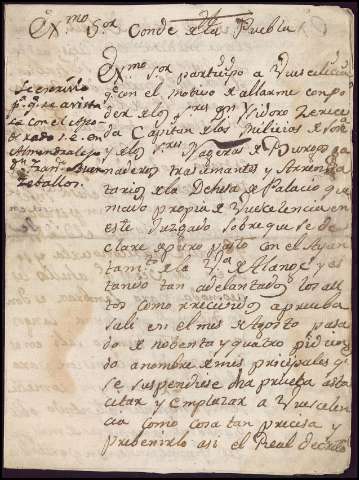 Ex.mo S.or Conde de la Puebla
Ex.mo S.or participo a Vuecelencia
q.e con el motivo de allarme con po
der de los S.res D.n Ysidoro
da Capitan de las Milicias de
y de los S.res de Burgos ga
naderos trasumantes y Arrenda
tarios de la Dehesa de Palacio que
propia de Vuecelencia en
este Juzgado sobre que se de
clare a puro pasto con el Ayun
tam.to de la V.a de y es
tando tan adelantados los au
tos como rrecividos a prueba
sali en el mes de Agosto pasa
do de nobenta y quatro pidiendo
a nombre de mis principales q.e
se suspendiese dha prueba asta
citar y emplazar a Vuecelen
cia como cosa tan precisa y
prebenirlo asi el Real decreto
Se escrivio
p.a q.e se aviste
con el Apo
derado de S.E. en
Almendralejo
D.n Fran.co
Zeballos